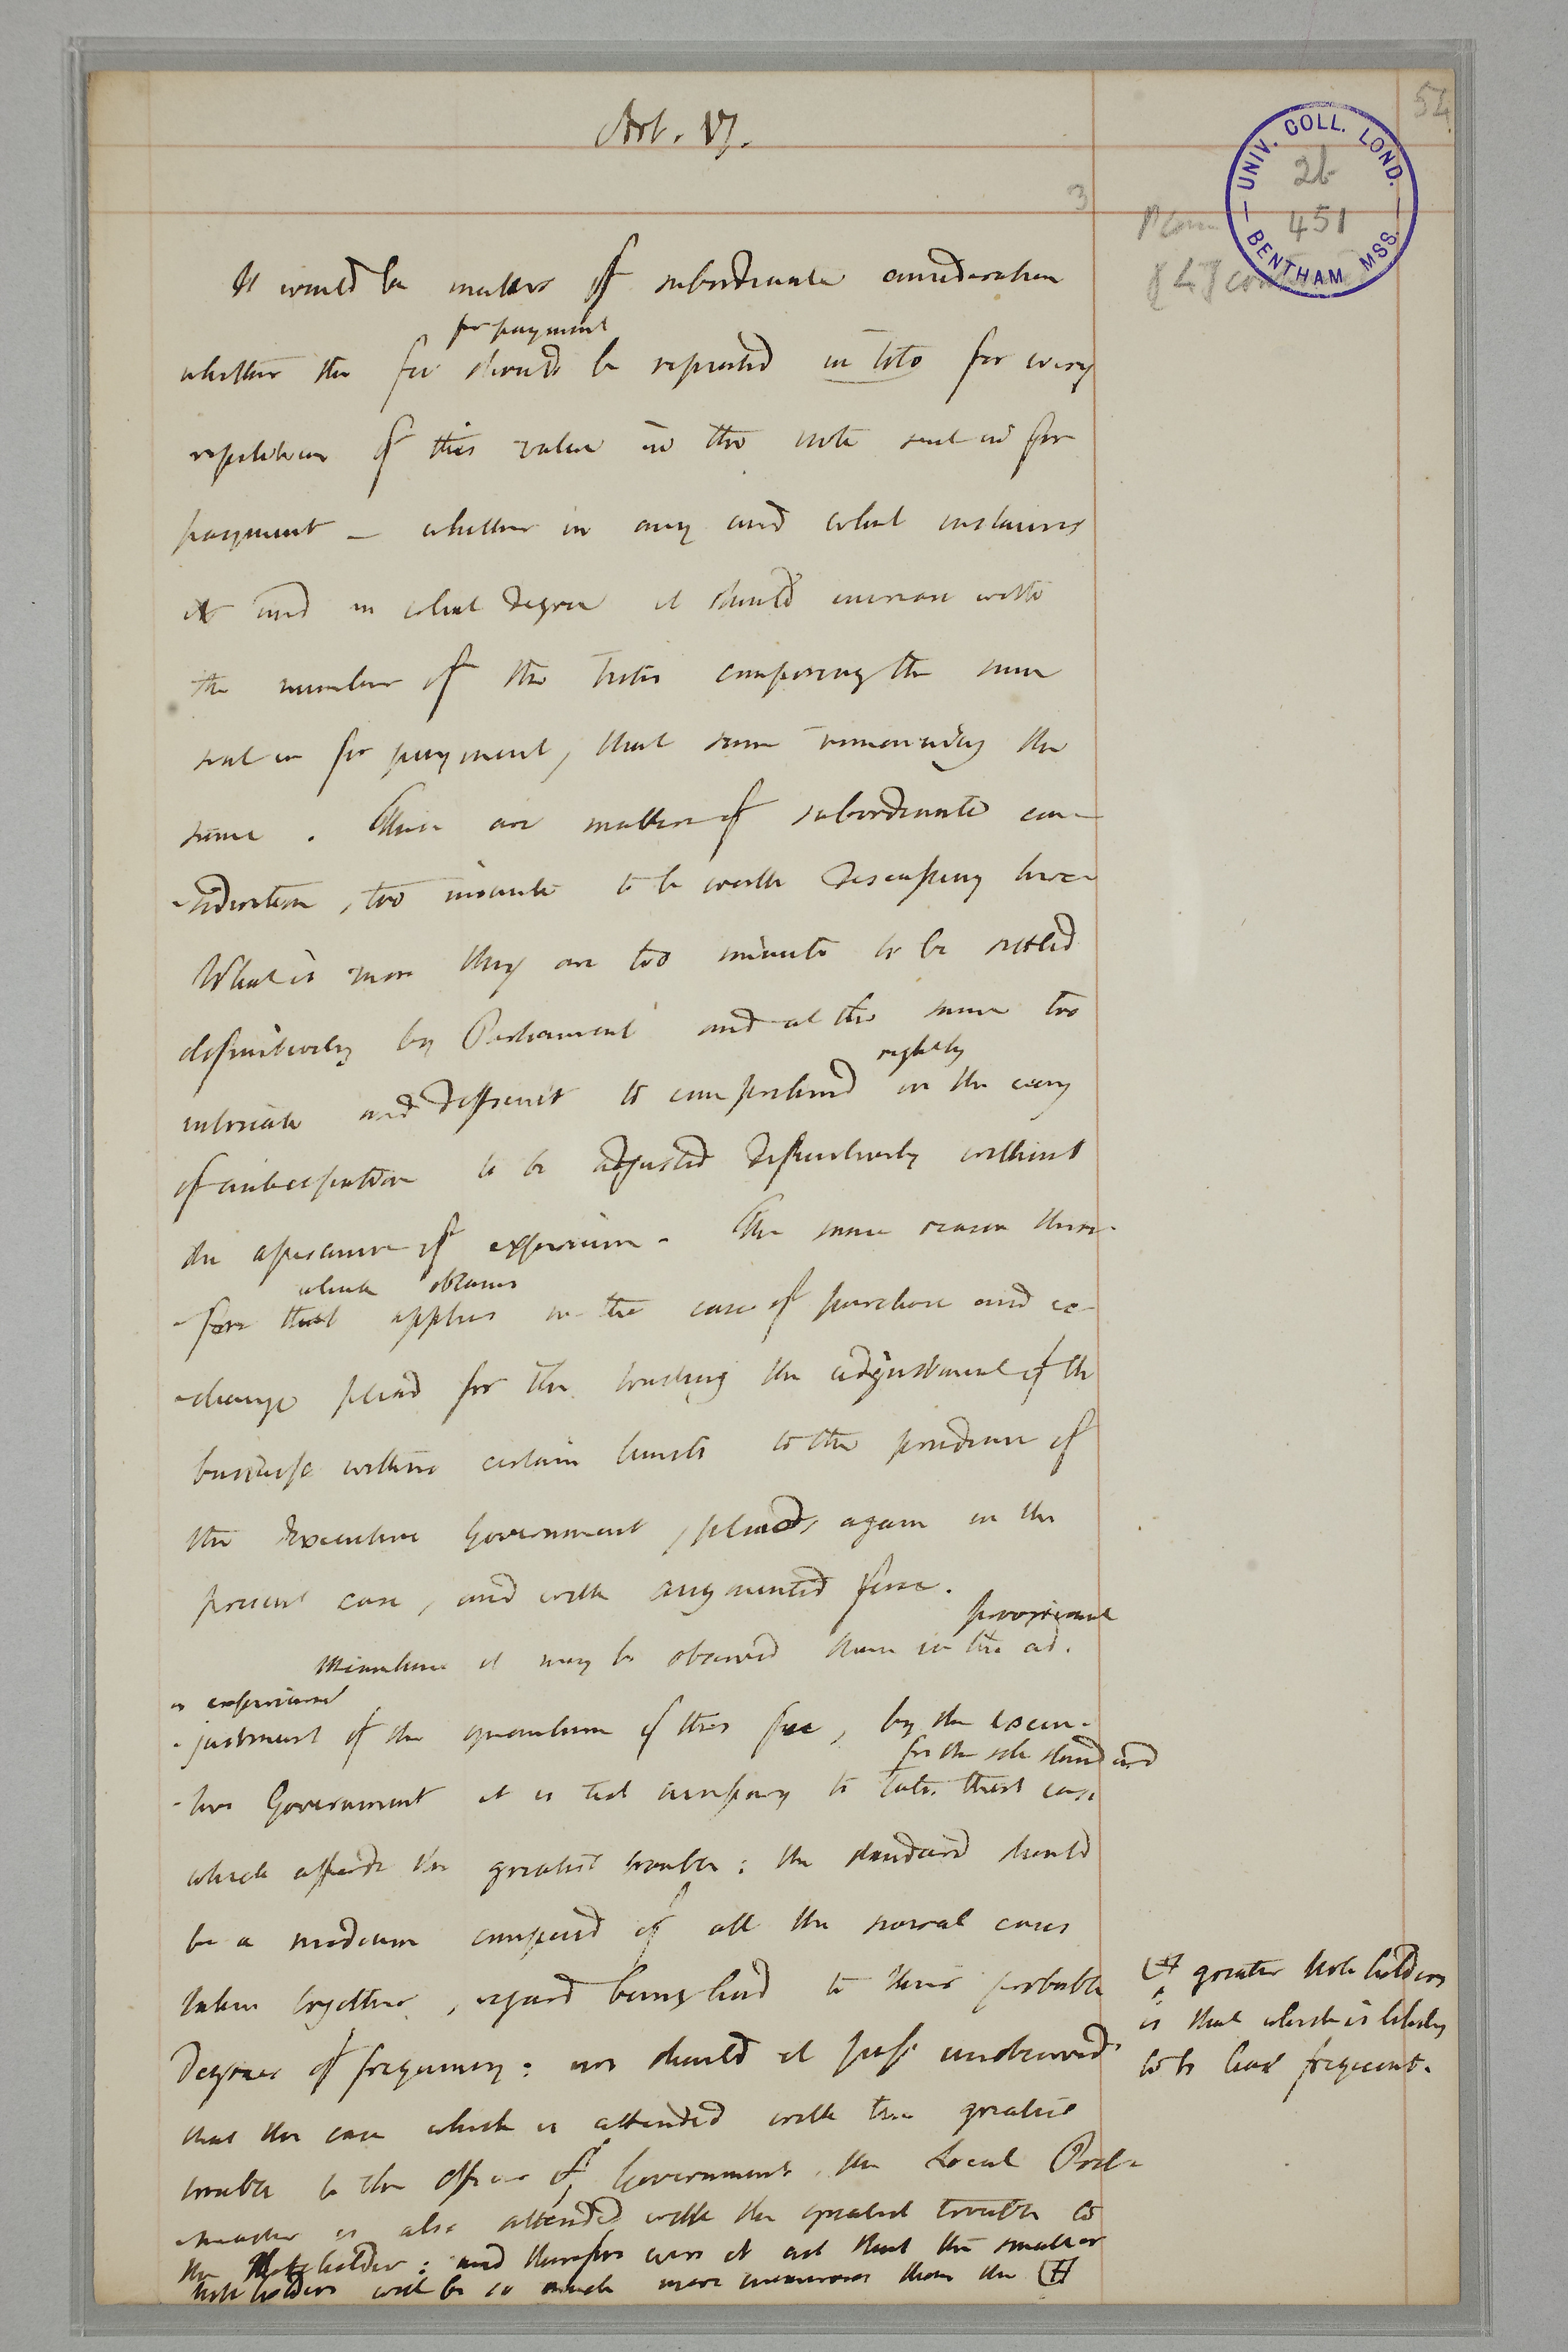 Art. 17.
54
3
UNIV. COLL. LOND.
2b
451
BENTHAM MSS.
It would be matter of subordinate consideration
for payment
whether the fee should be repeated in toto for every
repetition of this value in the note sent in for
payment — whether in any and what instances
and in what degree it should increase with
the number of the Notes composing the sum
sent in for payment, that sum remaining the
same. These are matters of subordinate con-
-sideration, too minute to be worth discussing here
What is more they are too minute to be settled
definitively by Parliament and at the same too
rightly
intricate and difficult to comprehend in the way
of anticipation to be adjusted definitively without
the assistance of experience. The same reason there-
which obtains
-fore that applies in the case of purchase and ex-
-change plead for the trusting the adjustment of the
business within certain limits to the prudence of
the Executive Government, pleads again in the
present case, and with augmented force.
provisional
Meantime it may be observed that in the ad-
or experimental
-justment of the quantum of this fee, by the Execu-
for the sole standard
-tive Government it is not necessary to take that case
which affords the greatest trouble: the standard should
be a medium composed of all the several cases
taken together, regard being had to their probable
degrees of frequency: nor should it pass unobserved
that the case which is attended with the greatest
trouble to the Officer of Government, the Local Post-
-master is also attended with the greatest trouble to
the Noteholder: and therefore were it not that the smaller
noteholders will be so much more numerous than the
greater Noteholders
is that which is likely
to be least frequent.